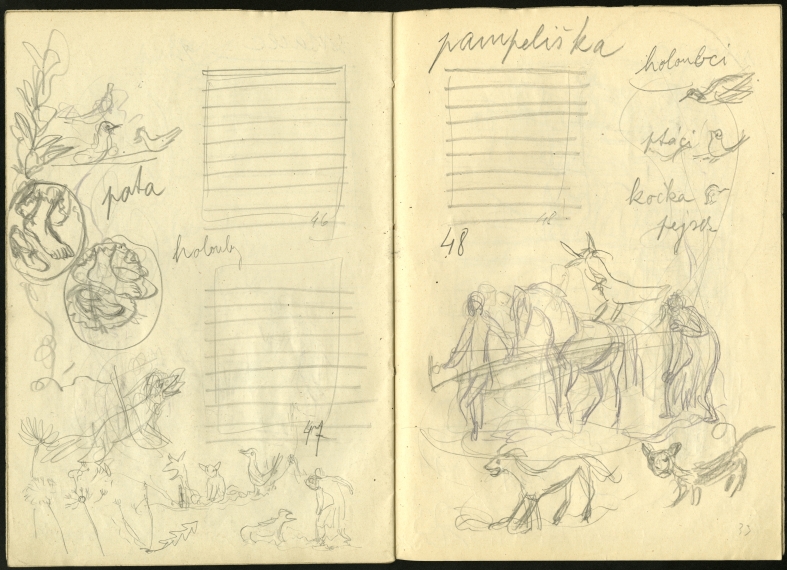 pata
46
holouby
47
pampeliška
holoubci
ptáci
kočka
pejsek
48
48
33